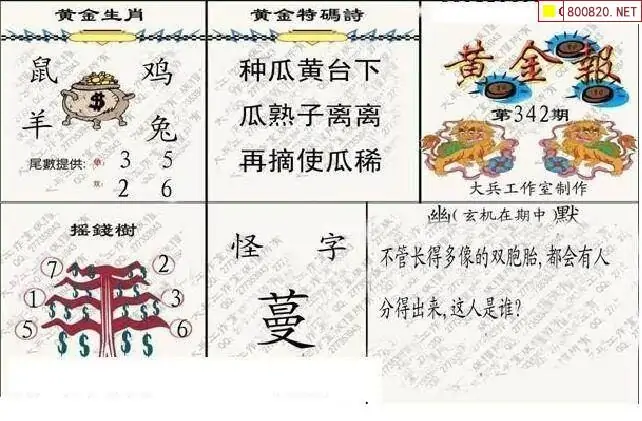 800820.NET
黄金生肖
鼠 鸡
$
羊 兔
尾數提供: 单: 3 5
双: 2 6
黄金特碼詩
种瓜黄台下
瓜熟子离离
再摘使瓜稀
黄金報
第342期
大兵工作室制作
摇錢樹
7 2
1 3
5 6
$ $ $ $
怪 字
蔓
幽(玄机在期中)默
不管长得多像的双胞胎,都会有人
分得出来,这人是谁?